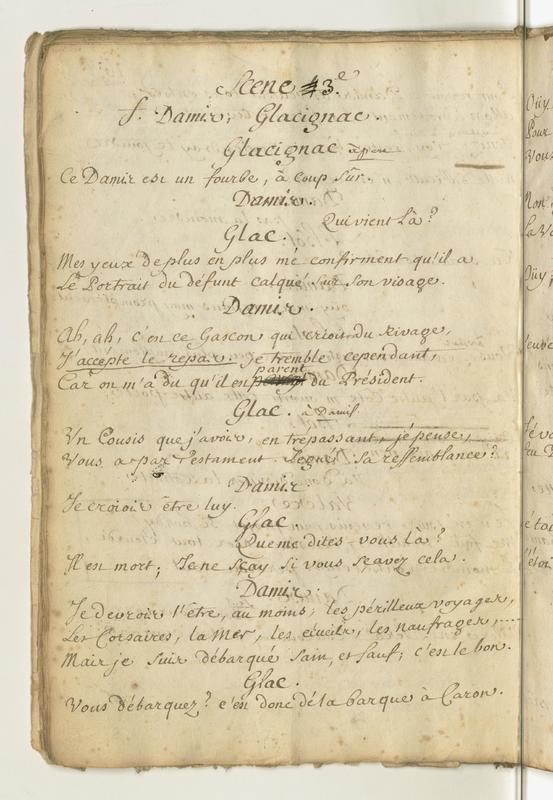 Scene 3.e
f. Damis, Glacignac.
Glacignac à part
Ce Damis est un fourbe, à coup sûr.
Damis.
Qui vient là?
Glac.
Mes yeux de plus en plus me confirment qu'il a
Le Portrait du défunt calqué sur son visage.
Damis.
Ah, ah, c'en ce Gascon qui crioit du rivage,
J'accepte le repas. Je tremble cependant,
parent
Car on m'a du qu'il en du Président.
Glac. à Damis.
Un Cousis que j'avois, en trépassant, je pense,
Vous a par Testament légué sa ressemblance?
Damis.
Je croiois être luy.
Glac.
Que me dites vous là?
Il est mort; Je ne sçay si vous sçavez cela.
Damis.
Je devrois l'être, au moins, les périlleux voyages,
Les Corsaires, la Mer, les écueils, les naufrages, ....
Mais je suis débarqué sain, et sauf; c'est le bon.
Glac.
Vous débarquez? c'est donc de la barque à Caron.